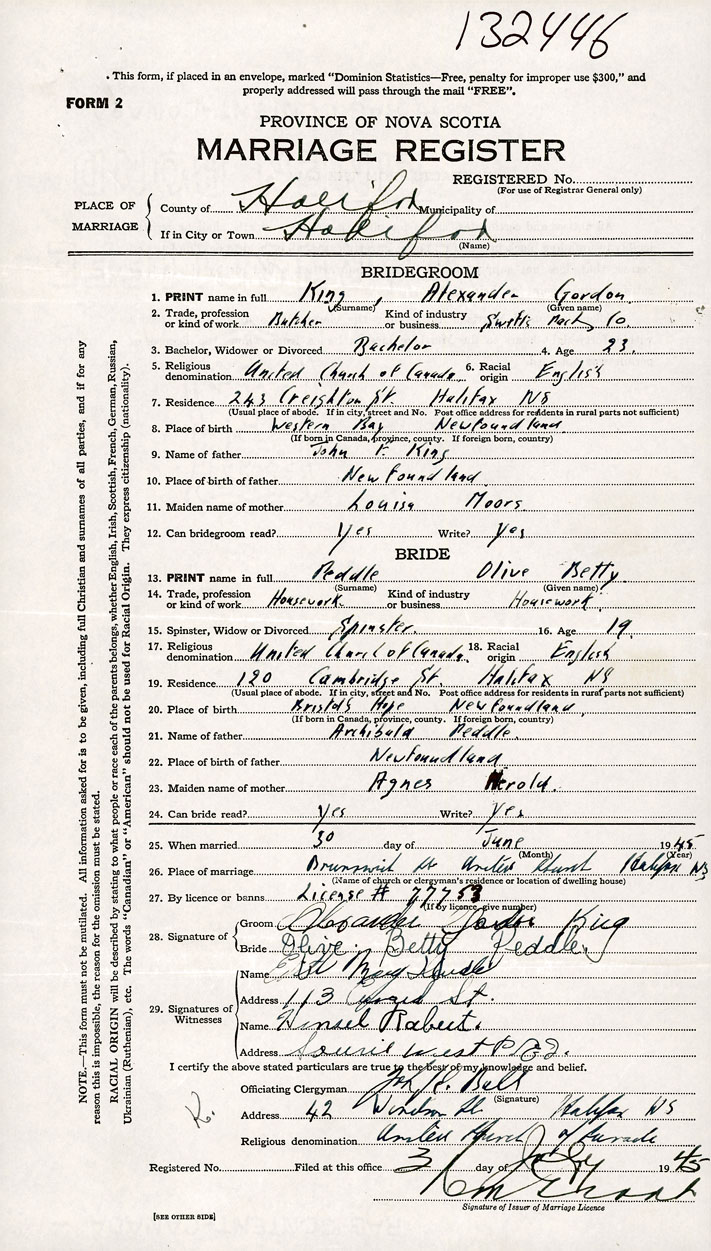 132446
. This form, if placed in an envelope, marked “Dominion Statistics—Free, penalty for improper use $300,” and
properly addressed will pass through the mail “FREE”.
FORM 2
PROVINCE OF NOVA SCOTIA
MARRIAGE REGISTER
REGISTERED No.
(For use of Registrar General only)
PLACE OF MARRIAGE
County of Halifax Municipality of
If in City or Town Halifax
(Name)
BRIDEGROOM
1. PRINT name in full King, Alexander Gordon
(Surname) (Given name)
2. Trade, profession or kind of work Butcher Kind of industry or business Swifts Pack Co.
3. Bachelor, Widower or Divorced Bachelor 4. Age 23.
5. Religious denomination United Church of Canada 6. Racial origin English
7. Residence 243 Creighton St. Halifax NS
(Usual place of abode. If in city, street and No. Post office address for residents in rural parts not sufficient)
8. Place of birth Western Bay Newfoundland
(If born in Canada, province, county. If foreign born, country)
9. Name of father John F. King
10. Place of birth of father Newfoundland
11. Maiden name of mother Louisa Moors
12. Can bridegroom read? Yes Write? Yes
BRIDE
13. PRINT name in full Peddle Olive Betty
(Surname) (Given name)
14. Trade, profession or kind of work Housework Kind of industry or business Housework
15. Spinster, Widow or Divorced Spinster. 16. Age 19.
17. Religious denomination United Church of Canada. 18. Racial origin English
19. Residence 120 Cambridge St. Halifax NS
(Usual place of abode. If in city, street and No. Post office address for residents in rural parts not sufficient)
20. Place of birth Bristol's Hope Newfoundland
(If born in Canada, province, county. If foreign born, country)
21. Name of father Archibald Peddle.
22. Place of birth of father Newfoundland
23. Maiden name of mother Agnes Herold.
24. Can bride read? Yes Write? Yes
25. When married 30 day of June 1945
(Month) (Year)
26. Place of marriage Brunswick St United Church Halifax NS
(Name of church or clergyman's residence or location of dwelling house)
27. By licence or banns License # 77753
(If by licence, give number)
28. Signature of
Groom Alexander Gordon King
Bride Olive Betty Peddle.
29. Signatures of Witnesses
Name
Address 113 St.
Name Rabert.
Address Souris West P.E.I.
I certify the above stated particulars are true to the best of my knowledge and belief.
Officiating Clergyman
(Signature)
Address 42 Windsor St Halifax NS
Religious denomination United Church of Canada
Registered No. Filed at this office 3 day of July 1945
Signature of Issuer of Marriage Licence
K.
[SEE OTHER SIDE]
NOTE.—This form must not be mutilated. All information asked for is to be given, including full Christian and surnames of all parties, and if for any
reason this is impossible, the reason for the omission must be stated.
RACIAL ORIGIN will be described by stating to what people or race each of the parents belongs, whether English, Irish, Scottish, French, German, Russian,
Ukrainian (Ruthenian), etc. The words “Canadian” or “American” should not be used for Racial Origin. They express citizenship (nationality).